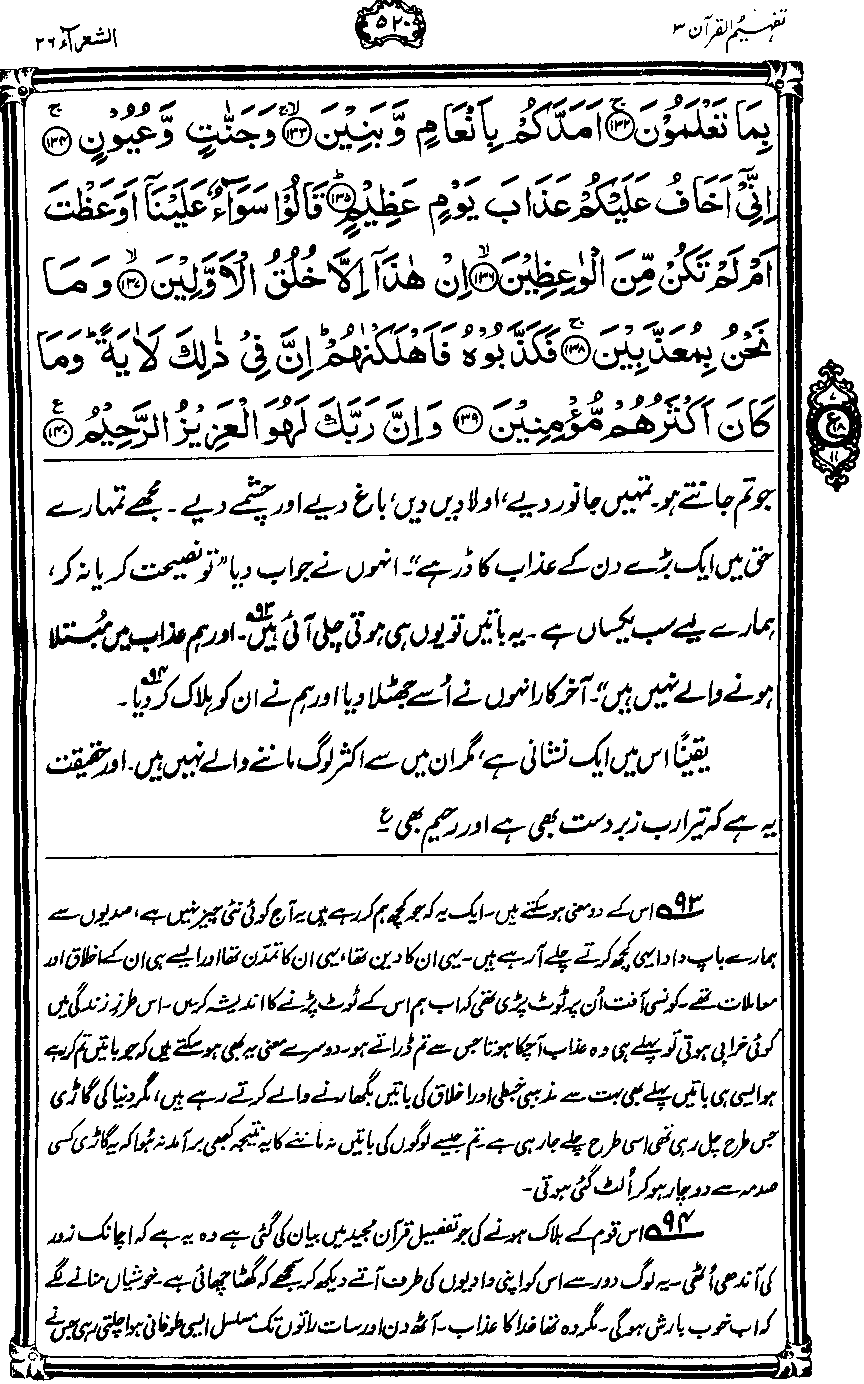 تفہیم القرآن ۳
۵۲۰
الشعرآء ۲۶
بِمَا تَعْلَمُوْنَ ﴿۱۳۲﴾ۚ اَمَدَّكُمْ بِاَنْعَامٍ وَّبَنِيْنَ ﴿۱۳۳﴾ۚۙ وَجَنّٰتٍ وَّعُيُوْنٍ ﴿۱۳۴﴾ۚ
اِنِّيْٓ اَخَافُ عَلَيْكُمْ عَذَابَ يَوْمٍ عَظِيْمٍ ﴿۱۳۵﴾ؕ قَالُوْا سَوَآءٌ عَلَيْنَآ اَوَعَظْتَ
اَمْ لَمْ تَكُنْ مِّنَ الْوٰعِظِيْنَ ﴿۱۳۶﴾ۙ اِنْ هٰذَآ اِلَّا خُلُقُ الْاَوَّلِيْنَ ﴿۱۳۷﴾ۙ وَمَا
نَحْنُ بِمُعَذَّبِيْنَ ﴿۱۳۸﴾ۚ فَكَذَّبُوْهُ فَاَهْلَكْنٰهُمْ ؕ اِنَّ فِيْ ذٰلِكَ لَاٰيَةً ؕ وَمَا
كَانَ اَكْثَرُهُمْ مُّؤْمِنِيْنَ ﴿۱۳۹﴾ وَاِنَّ رَبَّكَ لَهُوَ الْعَزِيْزُ الرَّحِيْمُ ﴿۱۴۰﴾ۧ
جو تم جانتے ہو۔ تمہیں جانور دیے، اولادیں دیں، باغ دیے اور چشمے دیے۔ مجھے تمہارے
حق میں ایک بڑے دن کے عذاب کا ڈر ہے"۔ انہوں نے جواب دیا "تو نصیحت کر یا نہ کر،
ہمارے لیے سب یکساں ہے۔ یہ باتیں تو یوں ہی ہوتی چلی آئی ہیں۹۳۔ اور ہم عذاب میں مُبتلا
ہونے والے نہیں ہیں"۔ آخرکار انہوں نے اُسے جھٹلا دیا اور ہم نے ان کو ہلاک کر دیا۹۴۔
یقینًا اس میں ایک نشانی ہے، مگر ان میں سے اکثر لوگ ماننے والے نہیں ہیں۔ اور حقیقت
یہ ہے کہ تیرا رب زبردست بھی ہے اور رحیم بھی ؏
۹۳ اس کے دو معنی ہو سکتے ہیں۔ ایک یہ کہ جو کچھ ہم کر رہے ہیں یہ آج کوئی نئی چیز نہیں ہے، صدیوں سے
ہمارے باپ دادا یہی کچھ کرتے چلے آ رہے ہیں۔ یہی ان کا دین تھا، یہی ان کا تمدّن تھا اور ایسے ہی ان کے اخلاق اور
معاملات تھے۔ کونسی آفت اُن پر ٹوٹ پڑی تھی کہ اب ہم اس کے ٹوٹ پڑنے کا اندیشہ کریں۔ اس طرزِ زندگی میں
کوئی خرابی ہوتی تو پہلے ہی وہ عذاب آ چکا ہوتا جس سے تم ڈراتے ہو۔ دوسرے معنی یہ بھی ہو سکتے ہیں کہ جو باتیں تم کر رہے
ہو ایسی ہی باتیں پہلے بھی بہت سے مذہبی خبطی اور اخلاق کی باتیں بگھارنے والے کرتے رہے ہیں، مگر دنیا کی گاڑی
جس طرح چل رہی تھی اسی طرح چلے جا رہی ہے۔ تم جیسے لوگوں کی باتیں نہ ماننے کا یہ نتیجہ کبھی برآمد نہ ہُوا کہ یہ گاڑی کسی
صدمہ سے دوچار ہو کر اُلٹ گئی ہوتی۔
۹۴ اس قوم کے ہلاک ہونے کی جو تفصیل قرآن مجید میں بیان کی گئی ہے وہ یہ ہے کہ اچانک زور
کی آندھی اُٹھی۔ یہ لوگ دور سے اس کو اپنی وادیوں کی طرف آتے دیکھ کر سمجھے کہ گھٹا چھائی ہے۔ خوشیاں منانے لگے
کہ اب خوب بارش ہو گی۔ مگر وہ تھا خدا کا عذاب۔ آٹھ دن اور سات راتوں تک مسلسل ایسی طوفانی ہوا چلتی رہی جس نے